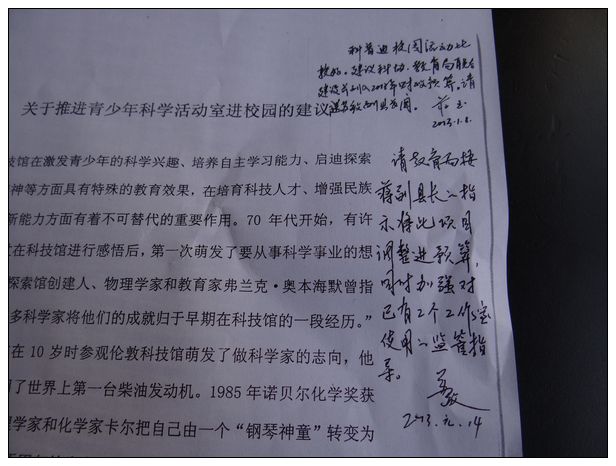 科普进校园活动比
较好。建议科协、教育局联合
建设并列入2013年财政预算。请
关于推进青少年科学活动室进校园的建议
2013.1.8.
技馆在激发青少年的科学兴趣、培养自主学习能力、启迪探索
神等方面具有特殊的教育效果，在培育科技人才、增强民族
新能力方面有着不可替代的重要作用。70 年代开始，有许
在科技馆进行感悟后，第一次萌发了要从事科学事业的想
探索馆创建人、物理学家和教育家弗兰克·奥本海默曾指
多科学家将他们的成就归于早期在科技馆的一段经历。”
在 10 岁时参观伦敦科技馆萌发了做科学家的志向，他
了世界上第一台柴油发动机。1985 年诺贝尔化学奖获
理学家和化学家卡尔把自己由一个“钢琴神童”转变为
请教育局按
蒋副县长的指
示将此项目
调整进预算，
同时加强对
已有2个工作室
使用的监管指
导。
2013.元.14